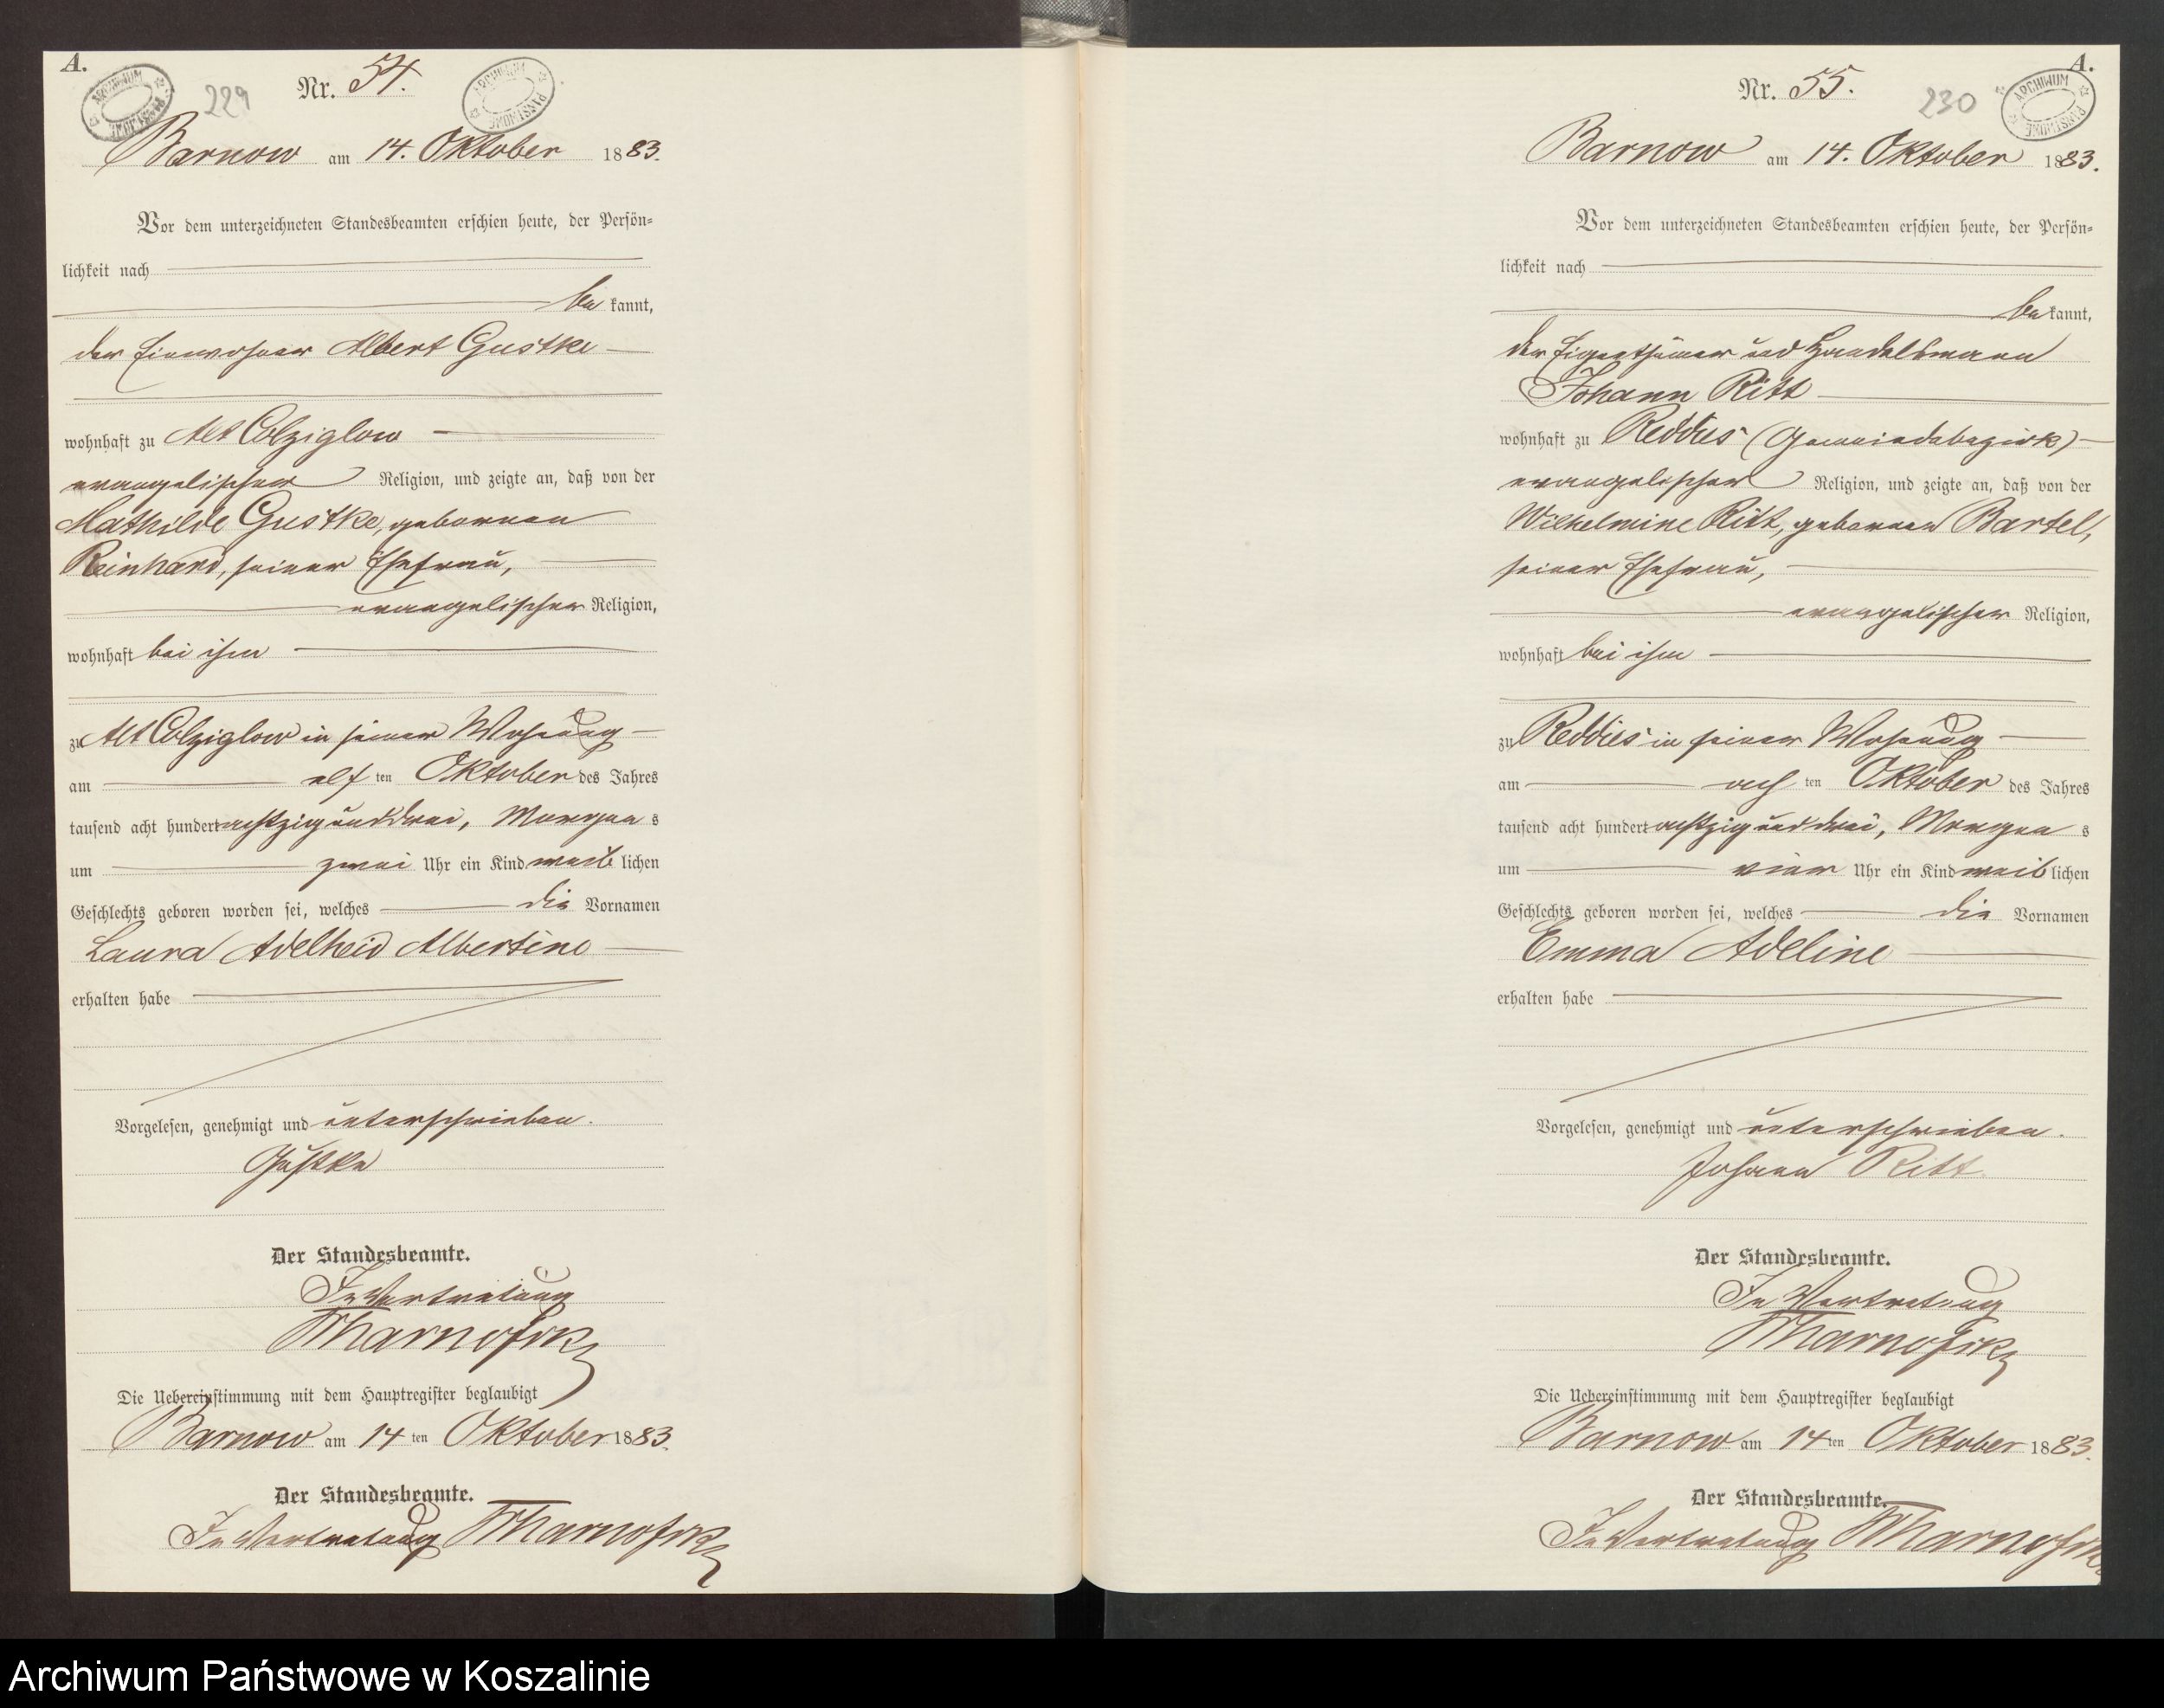 A.
ARCHIWUM PAŃSTWOWE
229
Nr. 54.
ARCHIWUM PAŃSTWOWE
Barnow am 14. Oktober 1883.
Vor dem unterzeichneten Standesbeamten erschien heute, der Persön-
lichkeit nach
be kannt,
der Einwohner Albert Gustke
wohnhaft zu Alt Colziglow
evangelischer Religion, und zeigte an, daß von der
Mathilde Gustke, geborenen
Reinhard, seiner Ehefrau,
evangelischer Religion,
wohnhaft bei ihm
zu Alt Colziglow in seiner Wohnung
am elf ten Oktober des Jahres
tausend acht hundert achtzig und drei, Morgen s
um zwei Uhr ein Kind weib lichen
Geschlechts geboren worden sei, welches die Vornamen
Laura Adelheid Albertine
erhalten habe
Vorgelesen, genehmigt und unterschrieben.
Gustke
Der Standesbeamte.
In Vertretung
Die Uebereinstimmung mit dem Hauptregister beglaubigt
Barnow am 14 ten Oktober 1883.
Der Standesbeamte.
In Vertretung
A.
Nr. 55.
230
ARCHIWUM PAŃSTWOWE
Barnow am 14. Oktober 1883.
Vor dem unterzeichneten Standesbeamten erschien heute, der Persön-
lichkeit nach
be kannt,
der Eigenthümer und Handelsmann
Johann Ritt
wohnhaft zu Reddies (Gemeindebezirk)
evangelischer Religion, und zeigte an, daß von der
Wilhelmine Ritt, geborenen Bartel,
seiner Ehefrau,
evangelischer Religion,
wohnhaft bei ihm
zu Reddies in seiner Wohnung
am ach ten Oktober des Jahres
tausend acht hundert achtzig und drei, Morgen s
um vier Uhr ein Kind weib lichen
Geschlechts geboren worden sei, welches die Vornamen
Emma Adeline
erhalten habe
Vorgelesen, genehmigt und unterschrieben.
Johann Ritt
Der Standesbeamte.
In Vertretung
Die Uebereinstimmung mit dem Hauptregister beglaubigt
Barnow am 14 ten Oktober 1883.
Der Standesbeamte.
In Vertretung
Archiwum Państwowe w Koszalinie